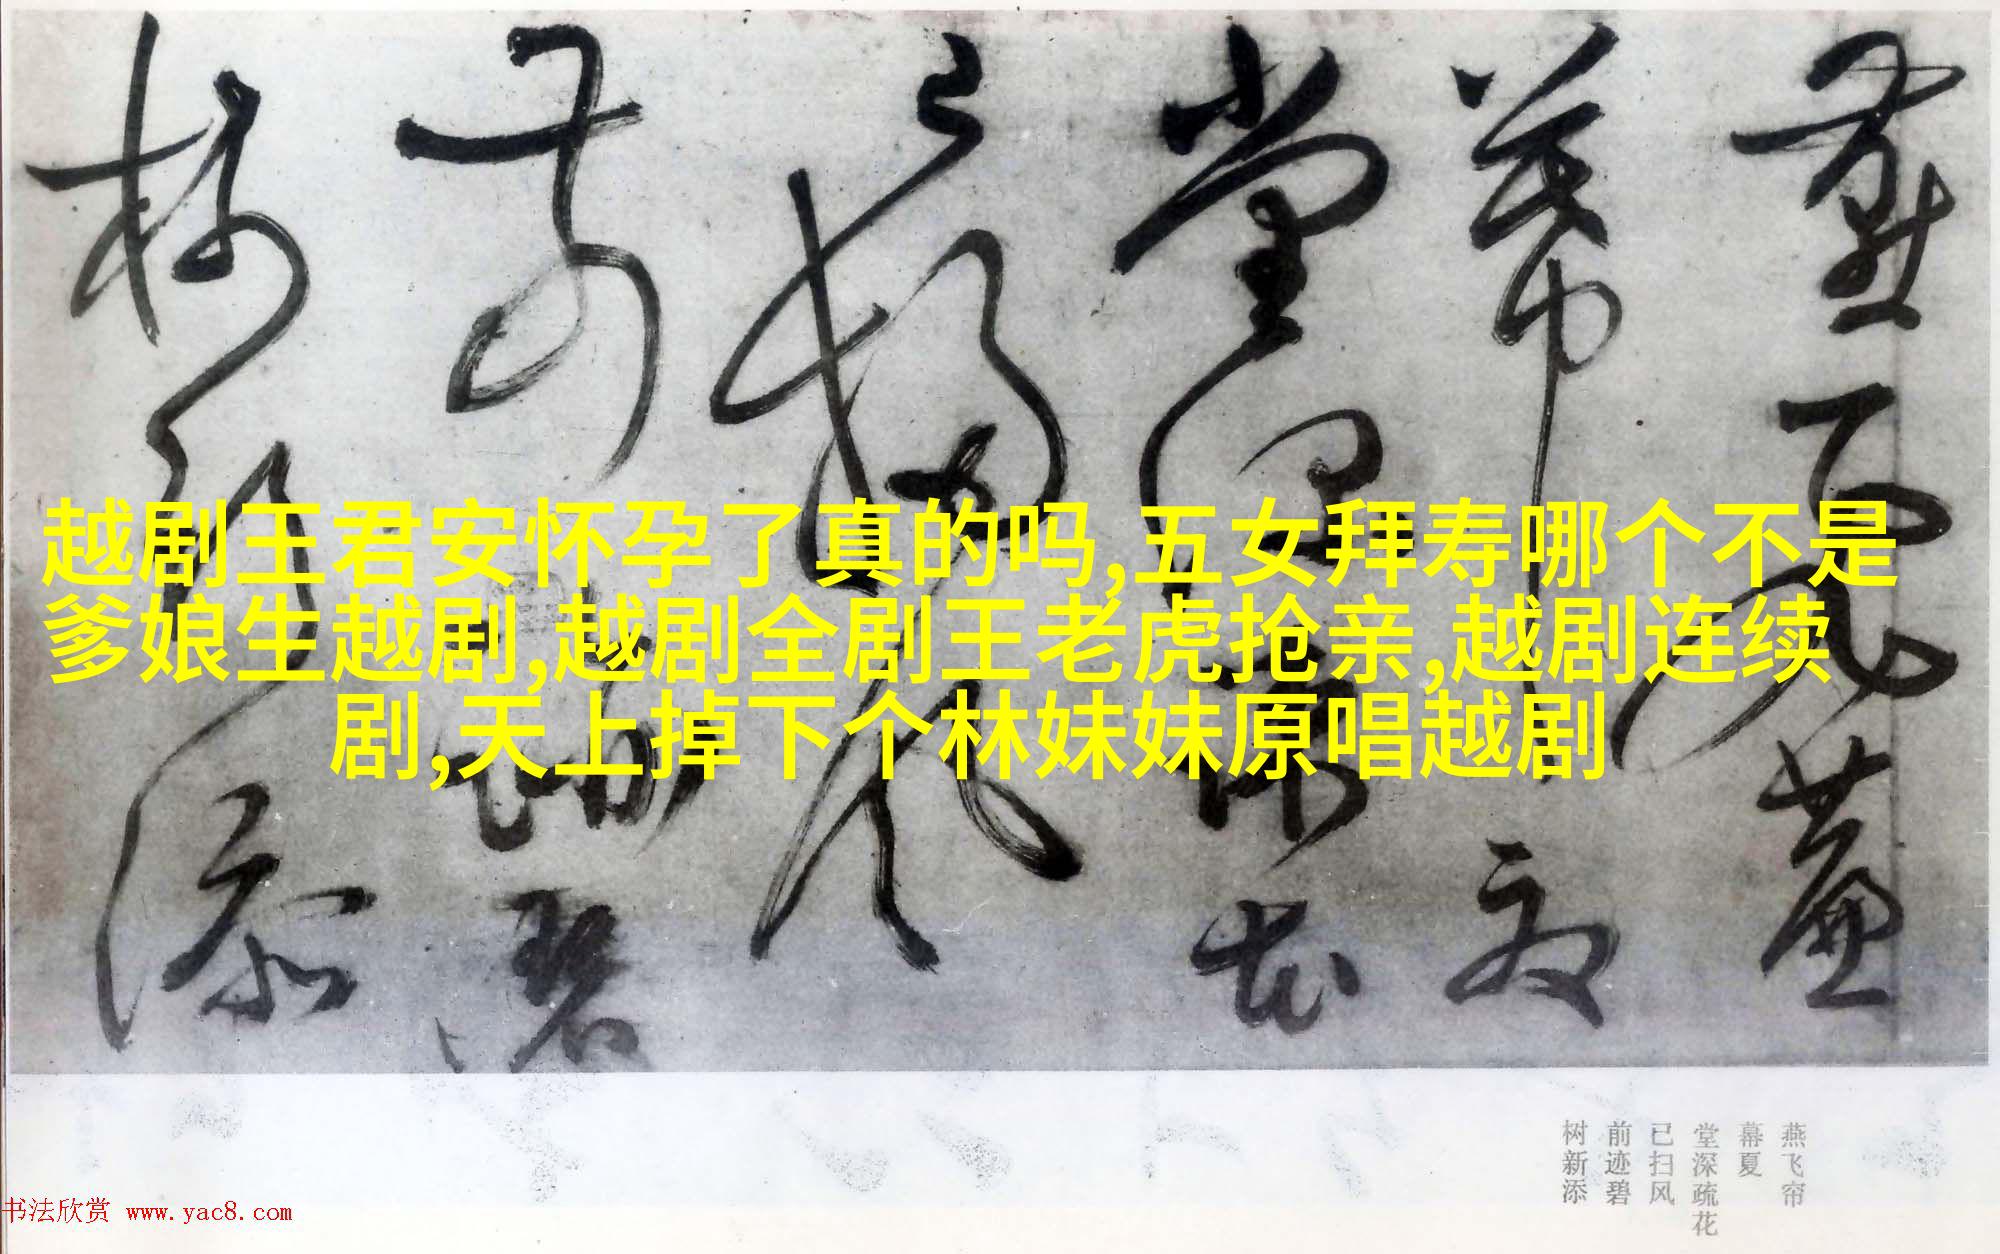 越剧王君安怀孕了真的吗,五女拜寿哪个不是
爹娘生越剧,越剧全剧王老虎抢亲,越剧连续
剧,天上掉下个林妹妹原唱越剧
燕飞帘
幕夏
堂深疏花
已扫风
前迹碧
树新添
书法欣赏 www.yac8.com